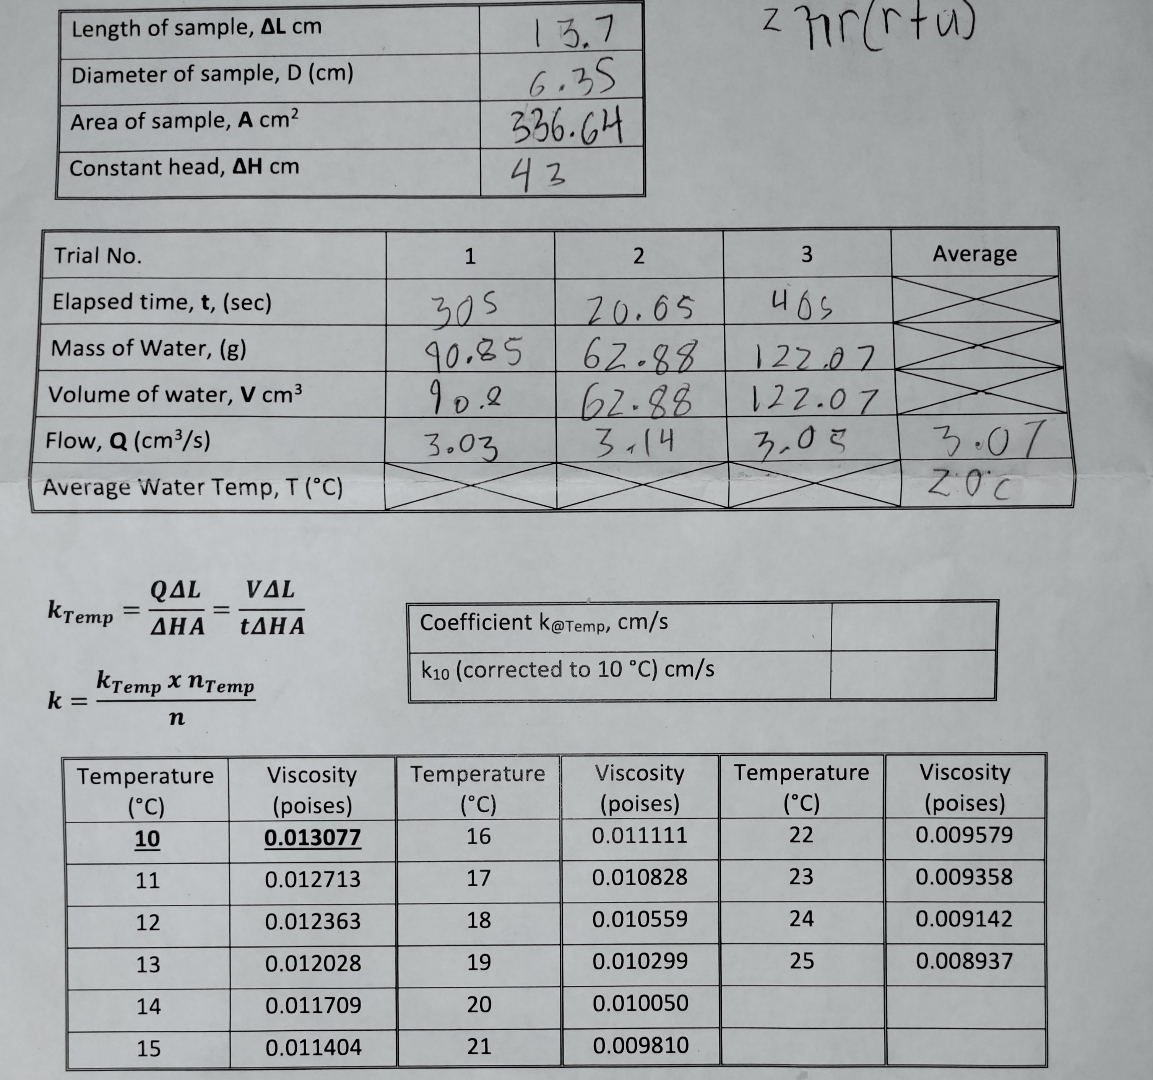 2πr(r+u)
Length of sample, ΔL cm 13.7
Diameter of sample, D (cm) 6.35
Area of sample, A cm² 336.64
Constant head, ΔH cm 43
Trial No. 1 2 3 Average
Elapsed time, t, (sec) 30s 20.05 40s
Mass of Water, (g) 90.85 62.88 122.07
Volume of water, V cm³ 90.8 62.88 122.07
Flow, Q (cm³/s) 3.03 3.14 3.05 3.07
Average Water Temp, T (°C) 20°c
k_Temp = QΔL / ΔHA = VΔL / tΔHA
Coefficient k@Temp, cm/s
k₁₀ (corrected to 10 °C) cm/s
k = k_Temp x n_Temp / n
Temperature (°C) Viscosity (poises) Temperature (°C) Viscosity (poises) Temperature (°C) Viscosity (poises)
10 0.013077 16 0.011111 22 0.009579
11 0.012713 17 0.010828 23 0.009358
12 0.012363 18 0.010559 24 0.009142
13 0.012028 19 0.010299 25 0.008937
14 0.011709 20 0.010050
15 0.011404 21 0.009810